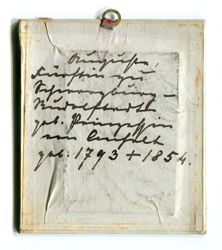 Auguste,
Fürstin zu
Schwarzburg-
Rudolstadt
geb. Prinzessin
von Anhalt
geb. 1793 + 1854.